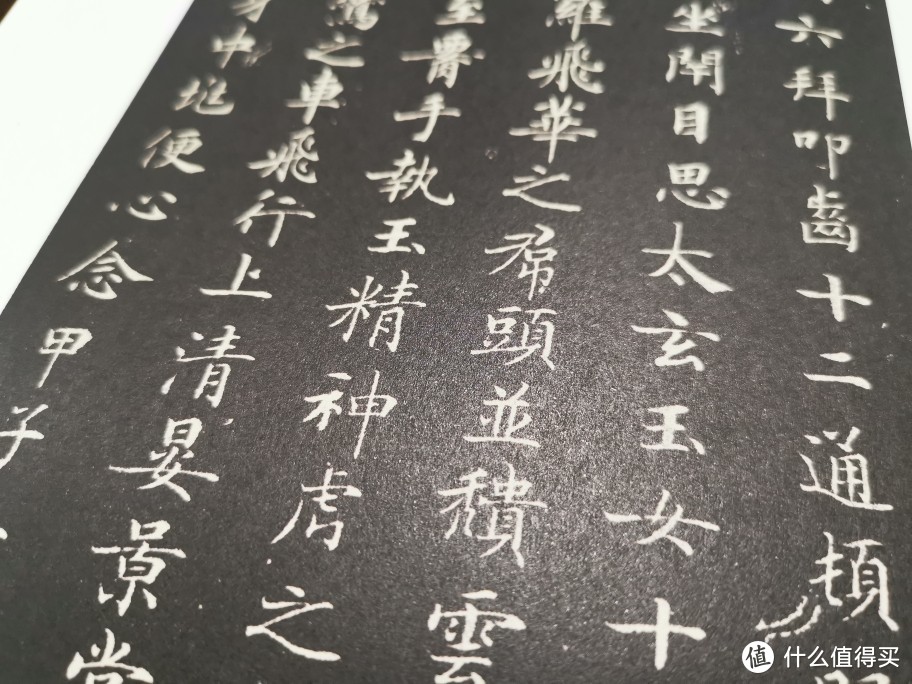 六拜叩齒十二通頓服
坐閉目思太玄玉女十
羅飛華之帬頭並頹雲
至手執玉精神虎之
鸞之車飛行上清晏景常
身中兆便心念甲子
值 什么值得买